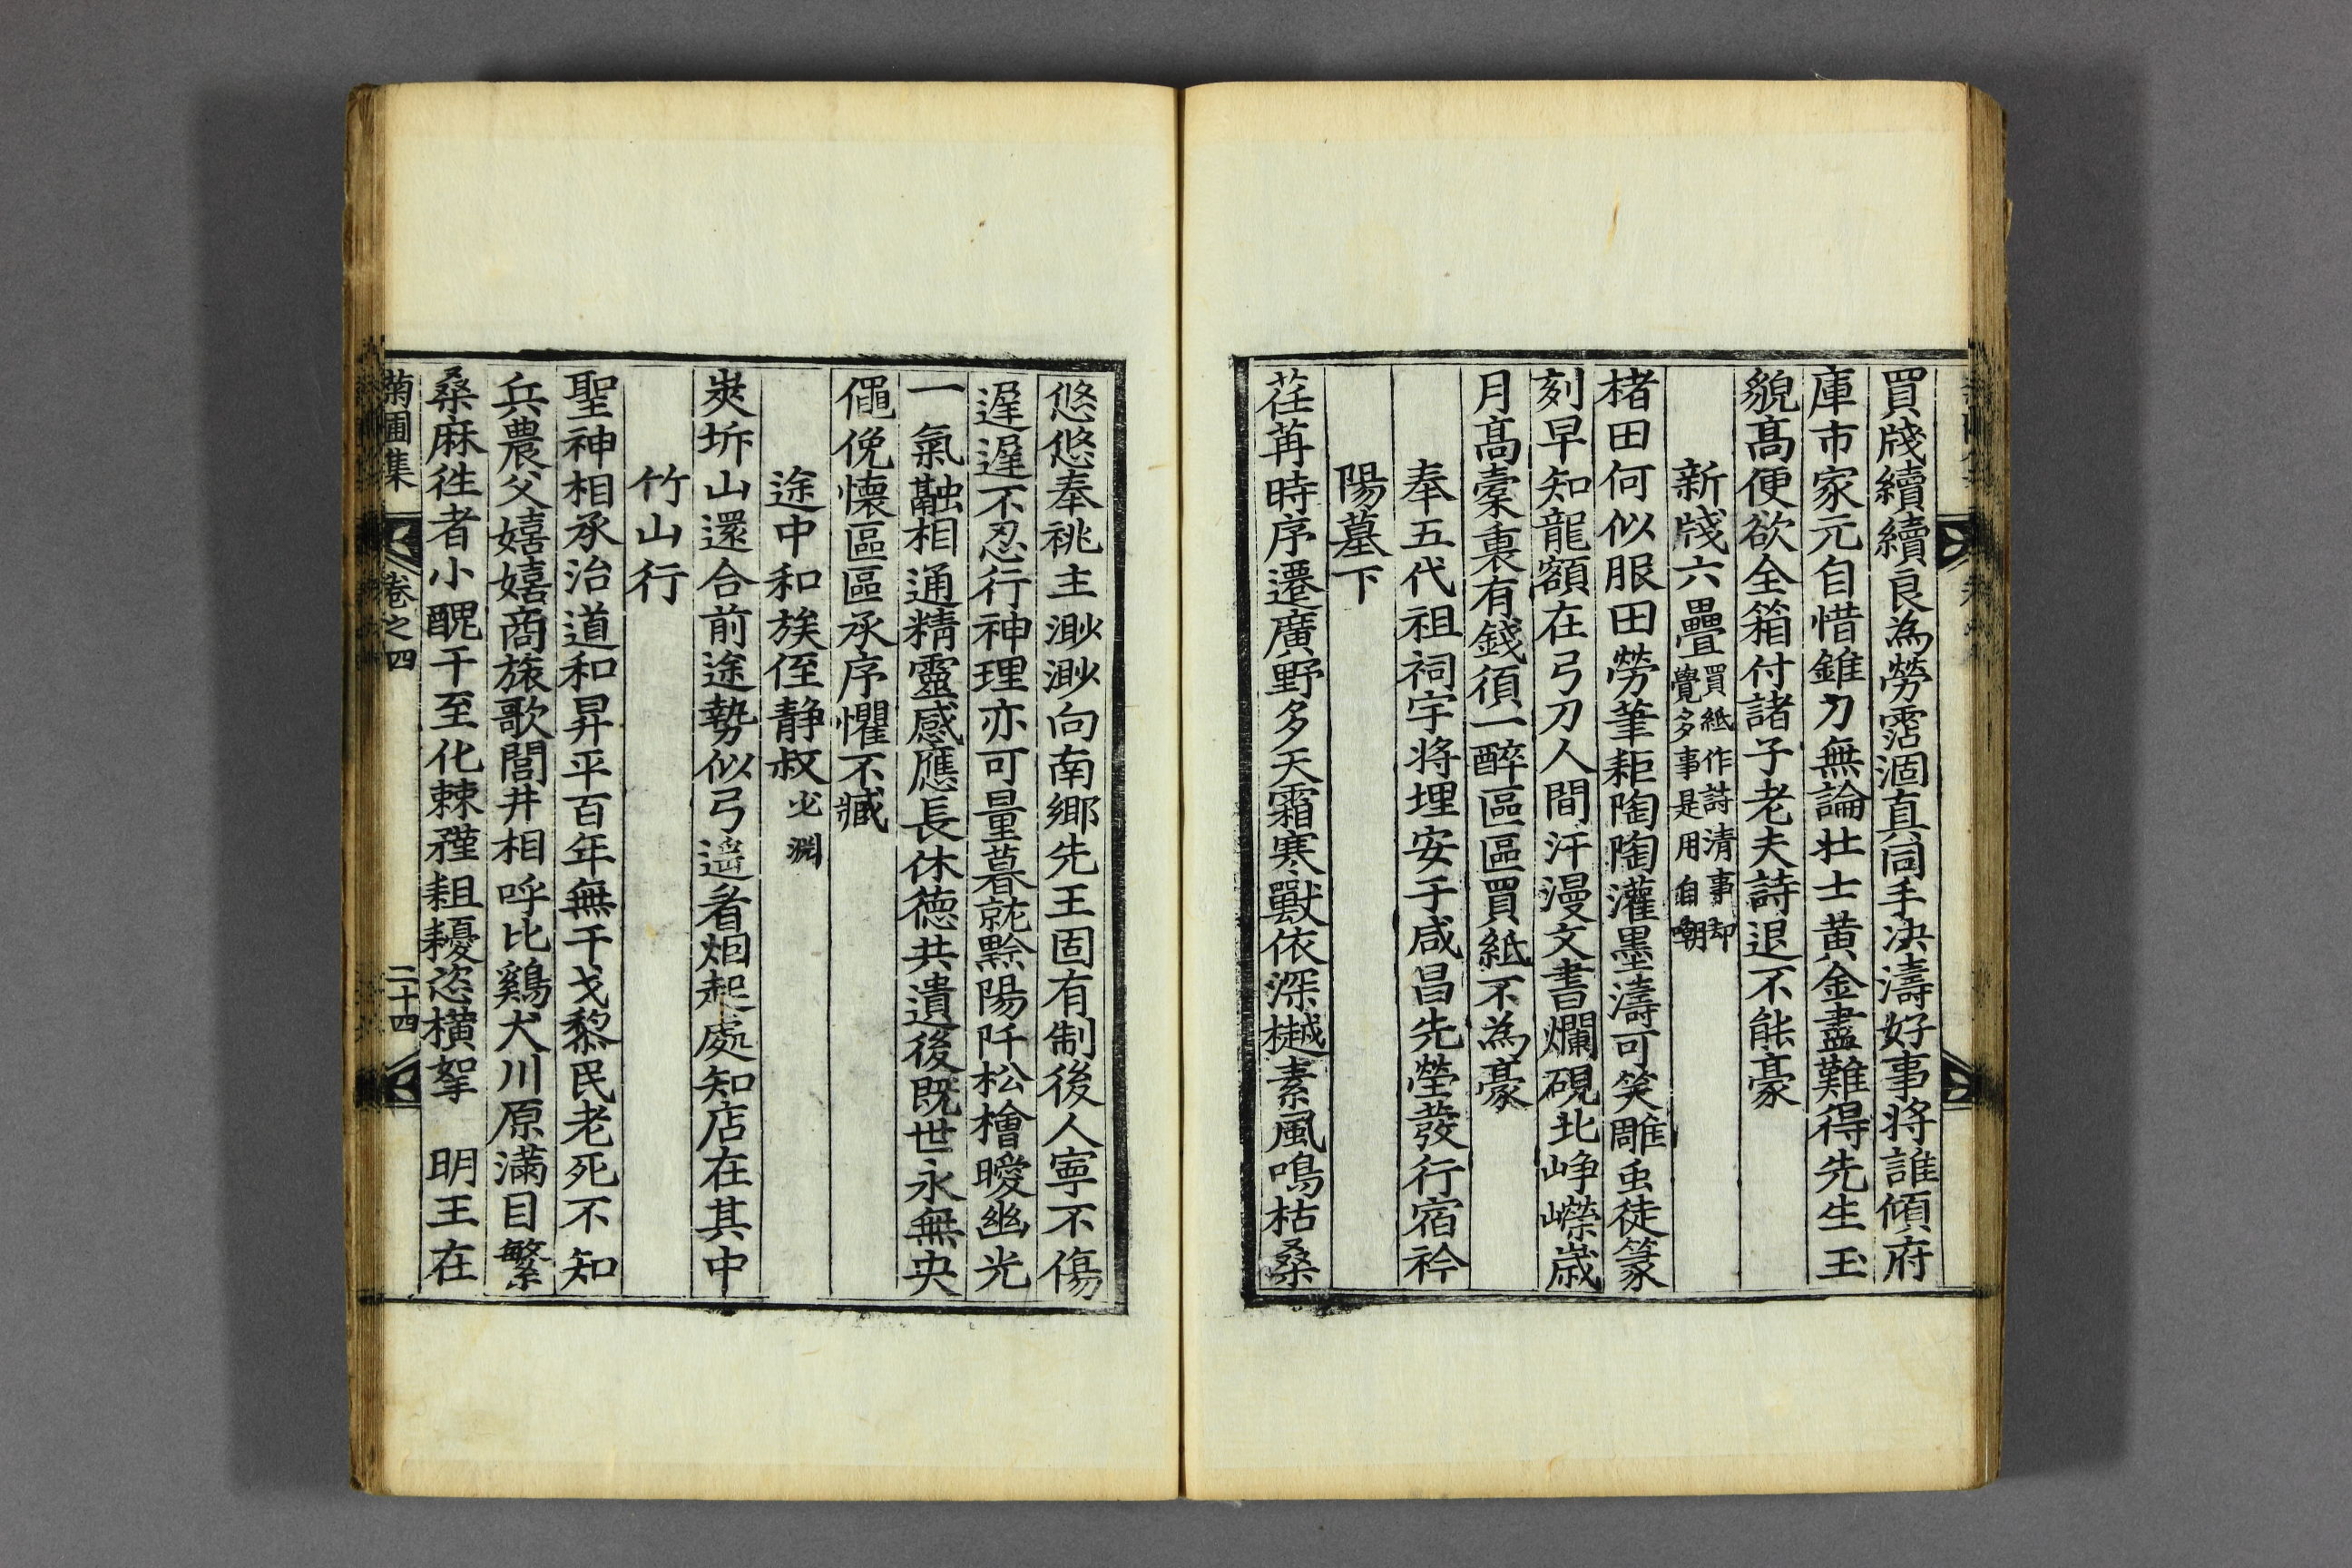 買牋續續良為勞霑涸真同手決濤好事將誰傾府
庫市家元自惜錐刀無論壯士黃金盡難得先生玉
貌髙便欲全箱付諸子老夫詩退不能豪
新牋六疊買紙作詩清事却覺多事是用自嘲
楮田何似服田勞筆耟陶陶灌墨濤可笑雕虫徒篆
刻早知龍額在弓刀人間汗漫文書爛硯北崢嶸歲
月髙橐裏有錢須一醉區區買紙不為豪
奉五代祖祠宇將埋安于咸昌先塋發行宿衿
陽墓下
荏苒時序遷廣野多天霜寒獸依深樾素風鳴枯桑
悠悠奉祧主渺渺向南鄉先王固有制後人寧不傷
遲遲不忍行神理亦可量暮就黔陽阡松檜曖幽光
一氣融相通精靈感應長休德共遺後既世永無央
僶俛懷區區承序懼不臧
途中和族侄静叔必淵
𡙇坼山還合前途勢似弓遥看烟起處知店在其中
竹山行
聖神相承治道和昇平百年無干戈黎民老死不知
兵農父嬉嬉商旅歌閭井相呼比鷄犬川原滿目繁
桑麻徃者小醜干至化棘矜耝耰恣橫挐　明王在
菊圃集　卷之四　二十四